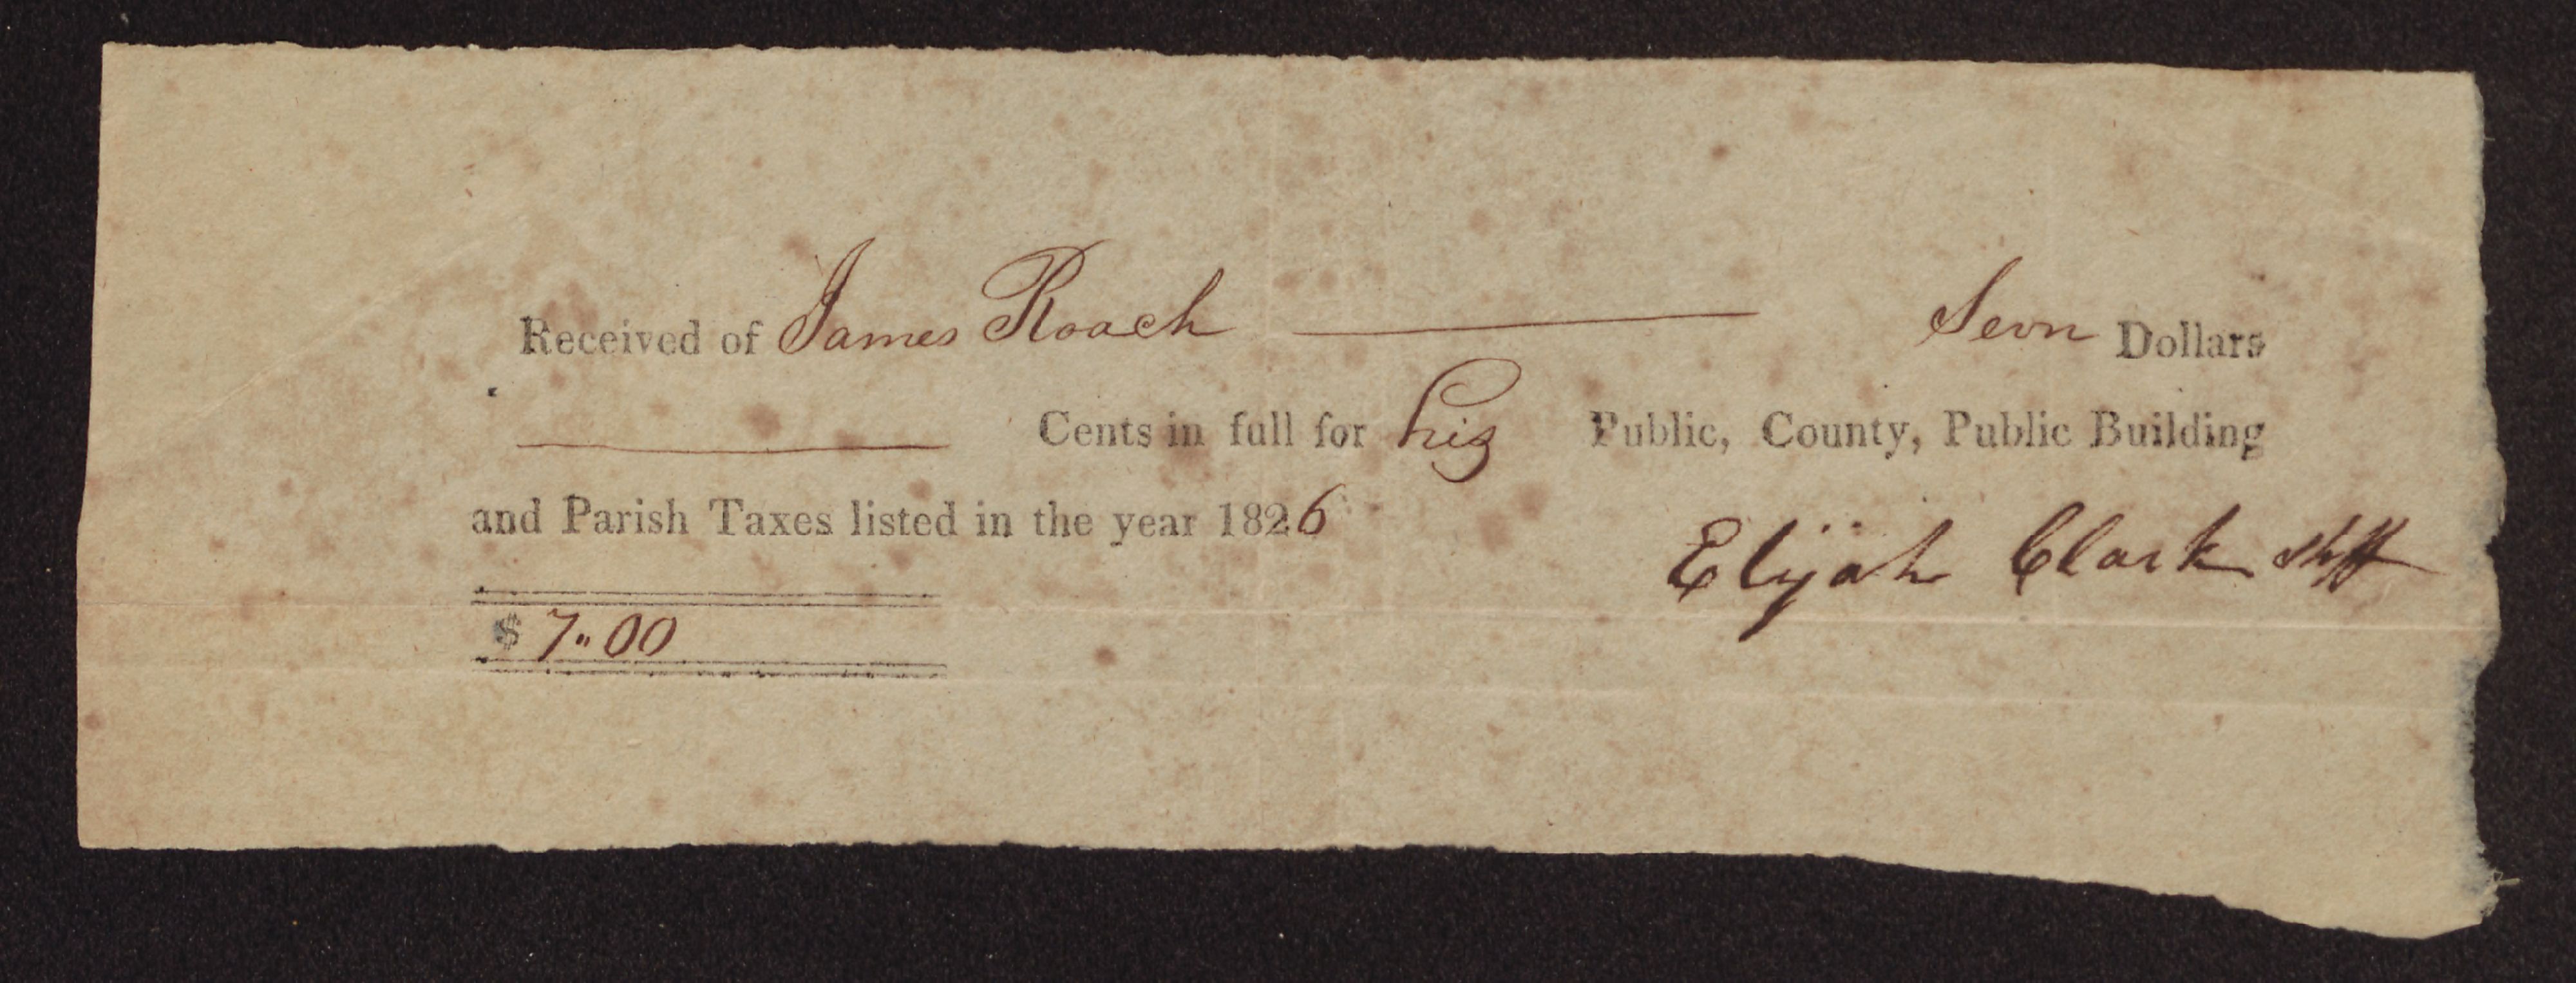 Received of James Roach Sevn Dollars
Cents in full for his Public, County, Public Building
and Parish Taxes listed in the year 1826
Elijah Clark shff
$ 7"00